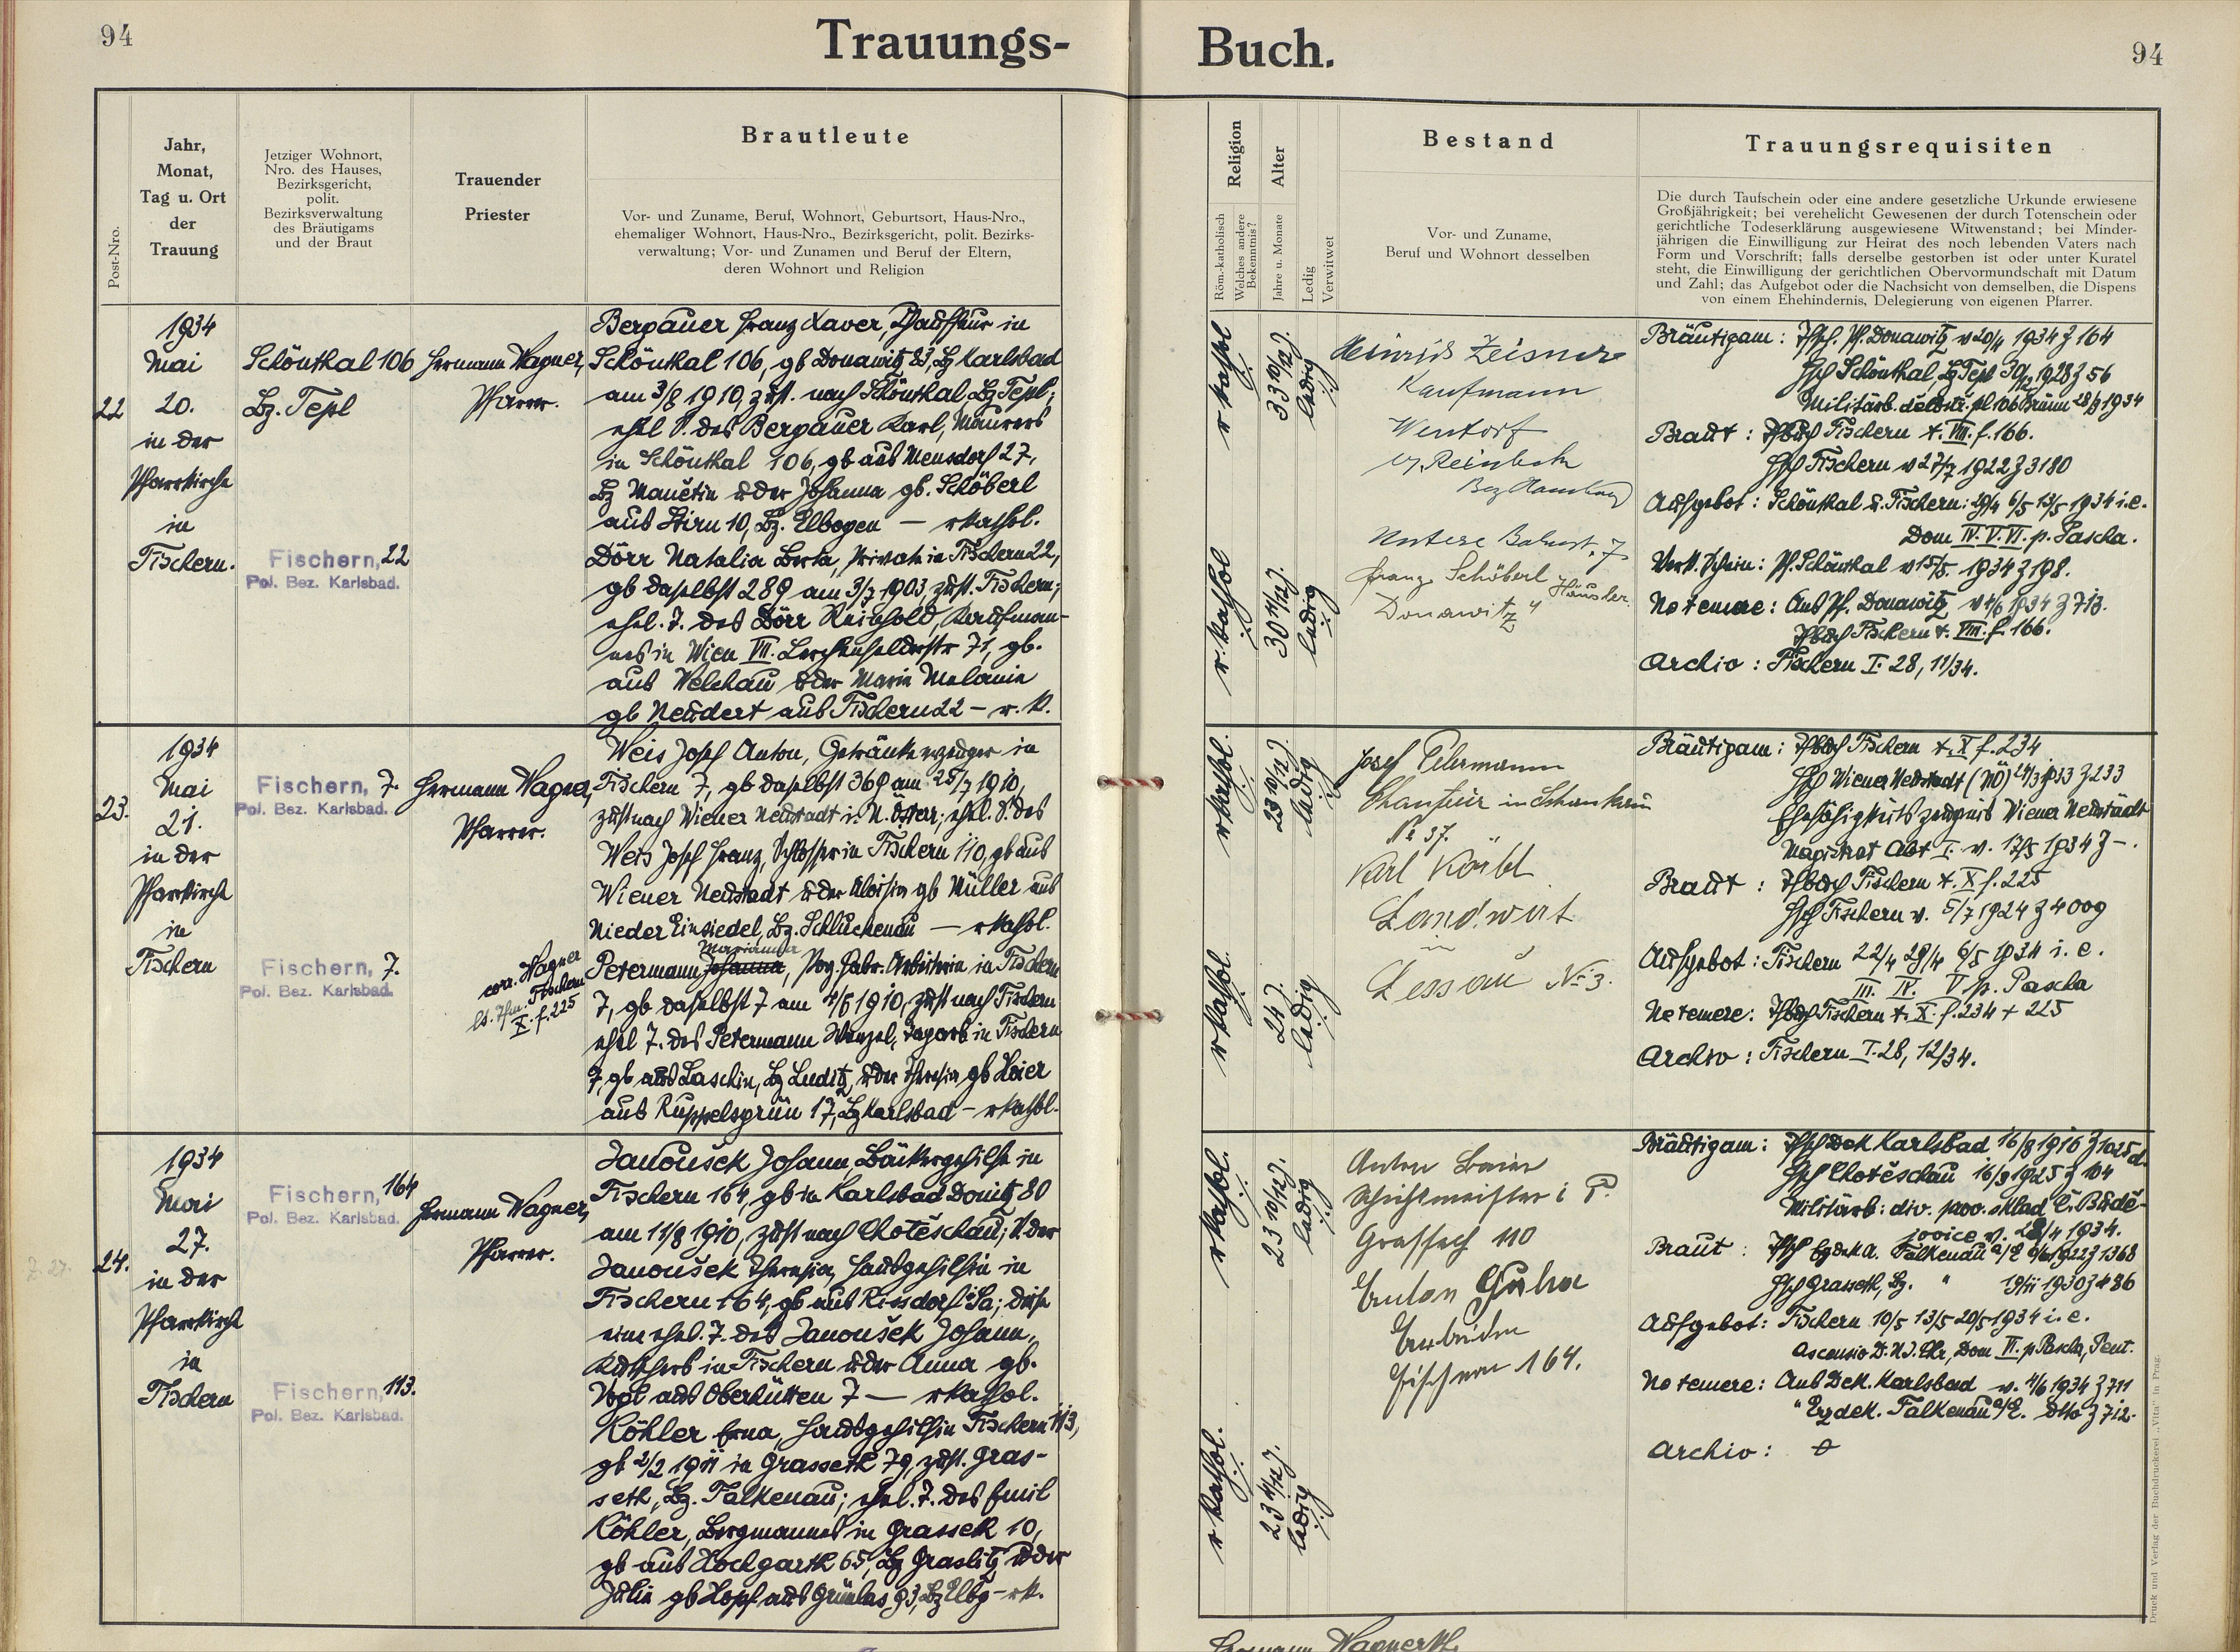 94
Trauungs-
Buch.
94
Post-Nro.
Jahr,
Monat,
Tag u. Ort
der
Trauung
Jetziger Wohnort,
Nro. des Hauses,
Bezirksgericht,
polit.
Bezirksverwaltung
des Bräutigams
und der Braut
Trauender
Priester
Brautleute
Vor- und Zuname, Beruf, Wohnort, Geburtsort, Haus-Nro.,
ehemaliger Wohnort, Haus-Nro., Bezirksgericht, polit. Bezirks-
verwaltung; Vor- und Zunamen und Beruf der Eltern,
deren Wohnort und Religion
Religion
Röm.-katholisch
Welches andere
Bekenntnis?
Alter
Jahre u. Monate
Ledig
Verwitwet
Bestand
Vor- und Zuname,
Beruf und Wohnort desselben
Trauungsrequisiten
Die durch Taufschein oder eine andere gesetzliche Urkunde erwiesene
Großjährigkeit; bei verehelicht Gewesenen der durch Totenschein oder
gerichtliche Todeserklärung ausgewiesene Witwenstand; bei Minder-
jährigen die Einwilligung zur Heirat des noch lebenden Vaters nach
Form und Vorschrift; falls derselbe gestorben ist oder unter Kuratel
steht, die Einwilligung der gerichtlichen Obervormundschaft mit Datum
und Zahl; das Aufgebot oder die Nachsicht von demselben, die Dispens
von einem Ehehindernis, Delegierung von eigenen Pfarrer.
22
1934
Mai
20.
in der
Pfarrkirche
in
Fischern.
Schönthal 106
Bz. Tepl
Fischern, 22
Pol. Bez. Karlsbad.
Hermann Wagner,
Pfarrer.
Bergauer Franz Xaver, Chauffeur in
Schönthal 106, gb Donawitz 83, Bz Karlsbad
am 3/8 1910, zust. nach Schönthal, Bz Tepl;
ehel S. des Bergauer Karl, Maurers
in Schönthal 106, gb aus Mensdorf 27,
Bz Manetin u der Johanna gb. Schöberl
aus Stirn 10, Bz. Elbogen — rkathol.
Dörr Natalia Berta, Private in Fischern 22,
gb daselbst 289 am 3/7 1903, zust. Fischern;
ehel. T. des Dörr Reinhold, Kaufman-
nes in Wien VII. Lerchenfelderstr 71, gb.
aus Welchau u der Marie Melanie
gb Neudert aus Fischern 22 — r. k.
r kathol
33 10/12 J.
ledig
r. kathol
30 11/12 J.
ledig
Heinrich Zeisner
Kaufmann
Wentorf
Untere Bahnst. 7
Franz Schöberl
Häusler
Donawitz 4
Bräutigam: Tfsch. Pf. Donawitz v 20/4 1934 Z 164
Hsch Schönthal, Bz Tepl 30/12 1928 Z 56
Braut: Tfbuch Fischern t. VIII. f. 166.
Hsch Fischern v 27/7 1922 Z 3180
Aufgebot: Schönthal u. Fischern: 29/4 6/5 13/5 1934 i. e.
Dom IV. V. VI. p. Pascha.
Verk. Schein: Pf. Schönthal v 15/5. 1934 Z 198.
Ne temere: Ans Pf. Donawitz v 4/6 1934 Z 713.
Tfbuch Fischern t. VIII. f. 166.
Archiv: Fischern I. 28, 11/34.
23.
1934
Mai
21.
in der
Pfarrkirche
in
Fischern
Fischern, 7.
Pol. Bez. Karlsbad.
Fischern, 7.
Pol. Bez. Karlsbad.
Hermann Wagner,
Pfarrer.
corr. Wagner
Fischern
X. f. 225
Weis Josef Anton, Getränkeerzeuger in
Fischern 7, gb daselbst 369 am 25/7 1910,
zust nach Wiener Neustadt i. N. Österr; ehel. S. des
Weis Josef Franz, Schlosser in Fischern 110, gb aus
Wiener Neustadt u der Aloisia gb Müller aus
Nieder Einsiedel, Bz. Schluckenau — rkathol.
Marianna
Petermann Johanna, Porz. fabr. Arbeiterin in Fischern
7, gb daselbst 7 am 4/5 1910, zust nach Fischern
ehel T. des Petermann Wenzel, Tagarb in Fischern
7, gb aus Laschin, Bz Luditz, u der Theresia gb Heier
aus Ruppelsgrün 17, Bz Karlsbad — rkathol.
rkathol.
23 10/12 J.
ledig
rkathol.
24 J.
ledig
Josef Petermann
Nº 37.
Karl Körbl
Landwirt
Lessau Nº 3.
Bräutigam: Tfbuch Fischern t. X f. 234
Ehefähigkeitszeugnis Wiener Neustadt
Magistrat Abt I. v. 17/5 1934 Z —.
Braut: Tfbuch Fischern t. X f. 225
Hsch Fischern v. 5/7 1924 Z 4009
Aufgebot: Fischern 22/4 29/4 6/5 1934 i. e.
III. IV. V p. Pascha
Ne temere: Tfbuch Fischern t. X. f. 234 + 225
Archiv: Fischern I. 28, 12/34.
24.
1934
Mai
27.
in der
Pfarrkirche
in
Fischern
Fischern, 164
Pol. Bez. Karlsbad.
Fischern, 113.
Pol. Bez. Karlsbad.
Hermann Wagner,
Pfarrer.
Janoušek Johann, Bäckergehilfe in
Fischern 164, gb in Karlsbad Donitz 80
am 11/8 1910, zust nach Chotěschau; S. der
Janoušek Theresia, Hausgehilfin in
Fischern 164, gb aus Rissdorf Sa; diese
eine ehel. T. des Janoušek Johann,
Kutschers in Fischern u der Anna gb.
Vogl aus Oberhütten 7 — rkathol.
Köhler Erna, Hausgehilfin Fischern 113,
gb 2/2 1911 in Grasseth 79, zust. Gras-
seth, Bz. Falkenau; ehel. T. des Emil
Köhler, Bergmannes in Grasseth 10,
gb aus Hochgarth 65, Bz Graslitz u der
Julia gb Hopf aus Grünlas 93, Bz Elbg — rk.
rkathol.
23 10/12 J.
ledig
rkathol.
23 4/12 J.
ledig
Anton Baier
Schichtmeister i. P.
Grasseth 110
Anton
Fischern 164.
Bräutigam: Tfsch Dek Karlsbad 16/8 1916 Z 1025 d.
Hsch Chotěschau 16/9 1925 Z 104
Militärb: div. prov. sklad Č. Budě-
jovice v. 28/4 1934.
Hsch Grasseth, Bz. " 19/11 1930 Z 486
Aufgebot: Fischern 10/5 13/5 20/5 1934 i. e.
Ascensio D. N. J. Chr, Dom VI. p Pascha, Pent.
Ne temere: Ans Dek. Karlsbad v. 4/6 1934 Z 711
" Erzdek. Falkenau a/E. dtto Z 712.
Archiv: o
Druck und Verlag der Buchdruckerei „Vita" in Prag.